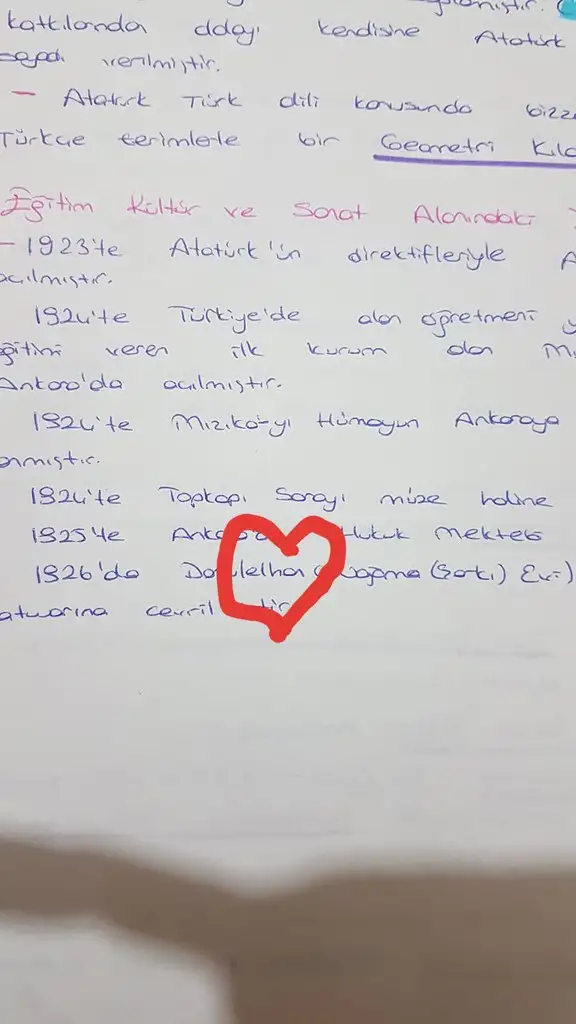 katkılarında dolayı kendisine Atatürk
soyadı verilmiştir.
– Atatürk Türk dili konusunda bizz
Türkçe terimlerle bir Geometri Kıla
Eğitim Kültür ve Sanat Alanındaki
– 1923'te Atatürk'ün direktifleriyle A
açılmıştır.
1924'te Türkiye'de alan öğretmeni y
eğitimi veren ilk kurum olan Mu
Ankara'da açılmıştır.
1924'te Mızıka-yı Hümayun Ankaraya
anmıştır.
1924'te Topkapı Sarayı müze haline
1925'te Hukuk Mekteb
1926'da (Şarkı) Evi)
atuarına